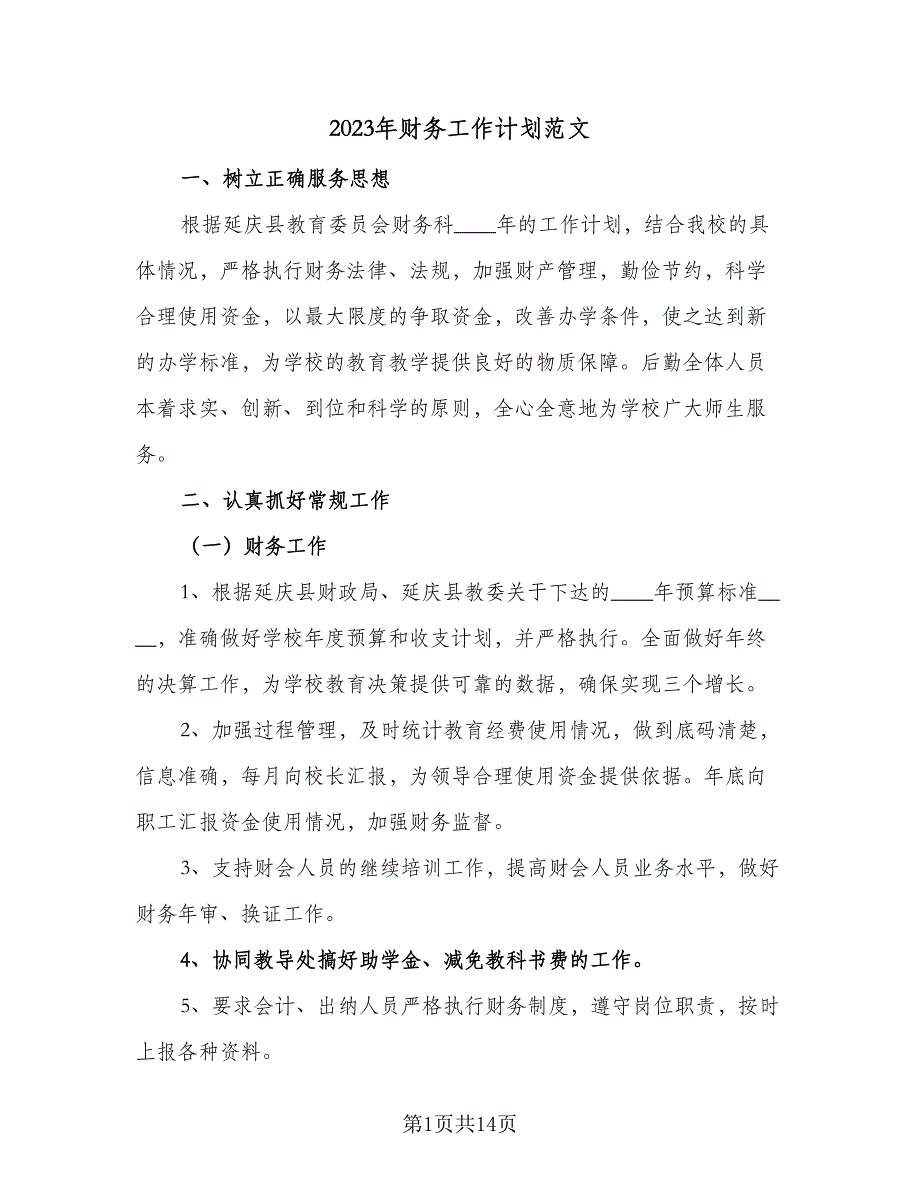 2023年财务工作计划范文
一、树立正确服务思想
根据延庆县教育委员会财务科____年的工作计划，结合我校的具
体情况，严格执行财务法律、法规，加强财产管理，勤俭节约，科学
合理使用资金，以最大限度的争取资金，改善办学条件，使之达到新
的办学标准，为学校的教育教学提供良好的物质保障。后勤全体人员
本着求实、创新、到位和科学的原则，全心全意地为学校广大师生服
务。
二、认真抓好常规工作
（一）财务工作
1、根据延庆县财政局、延庆县教委关于下达的____年预算标准__
__，准确做好学校年度预算和收支计划，并严格执行。全面做好年终
的决算工作，为学校教育决策提供可靠的数据，确保实现三个增长。
2、加强过程管理，及时统计教育经费使用情况，做到底码清楚，
信息准确，每月向校长汇报，为领导合理使用资金提供依据。年底向
职工汇报资金使用情况，加强财务监督。
3、支持财会人员的继续培训工作，提高财会人员业务水平，做好
财务年审、换证工作。
4、协同教导处搞好助学金、减免教科书费的工作。
5、要求会计、出纳人员严格执行财务制度，遵守岗位职责，按时
上报各种资料。
第1页共14页